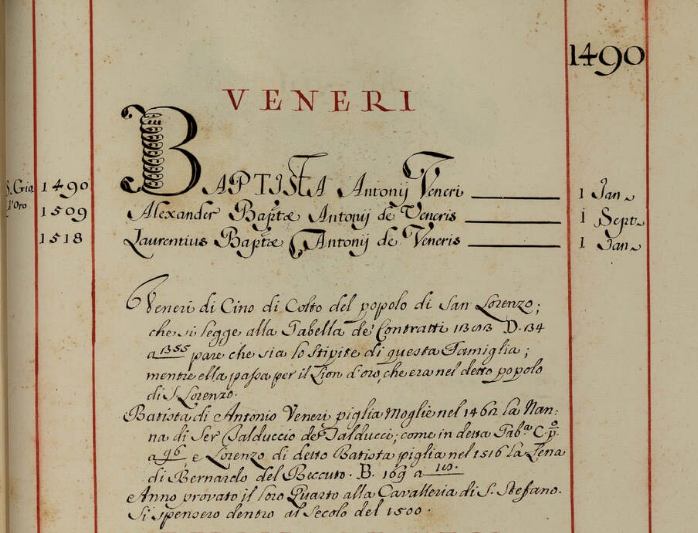 1490
VENERI
S. Gio: 1490 BAPTISTA Antonij Veneri 1 Jan.
d'Oro 1509 Alexander Baptæ Antonij de Veneris 1 Sept.
1518 Laurentius Baptæ Antonij de Veneris 1 Jan.
Veneri di Cino di Colto del popolo di San Lorenzo;
che si legge alla Tabella de' Contratti D. 134
a 1355 pare che sia lo Stipite di questa Famiglia;
mentre ella passa per il Lion d'oro, che era nel detto popolo
di S. Lorenzo.
Batista di Antonio Veneri piglia Moglie nel 1462 la Nan:
na di Ser Balduccio de' Balducci; come in detta Tab.ª C
a 96 e Lorenzo di detto Batista piglia nel 1516 la Lena
di Bernardo del Beccuto. B. 169 a
Anno provato il loro Quarto alla Cavalleria di S. Stefano.
Si spensero dentro al Secolo del 1500.